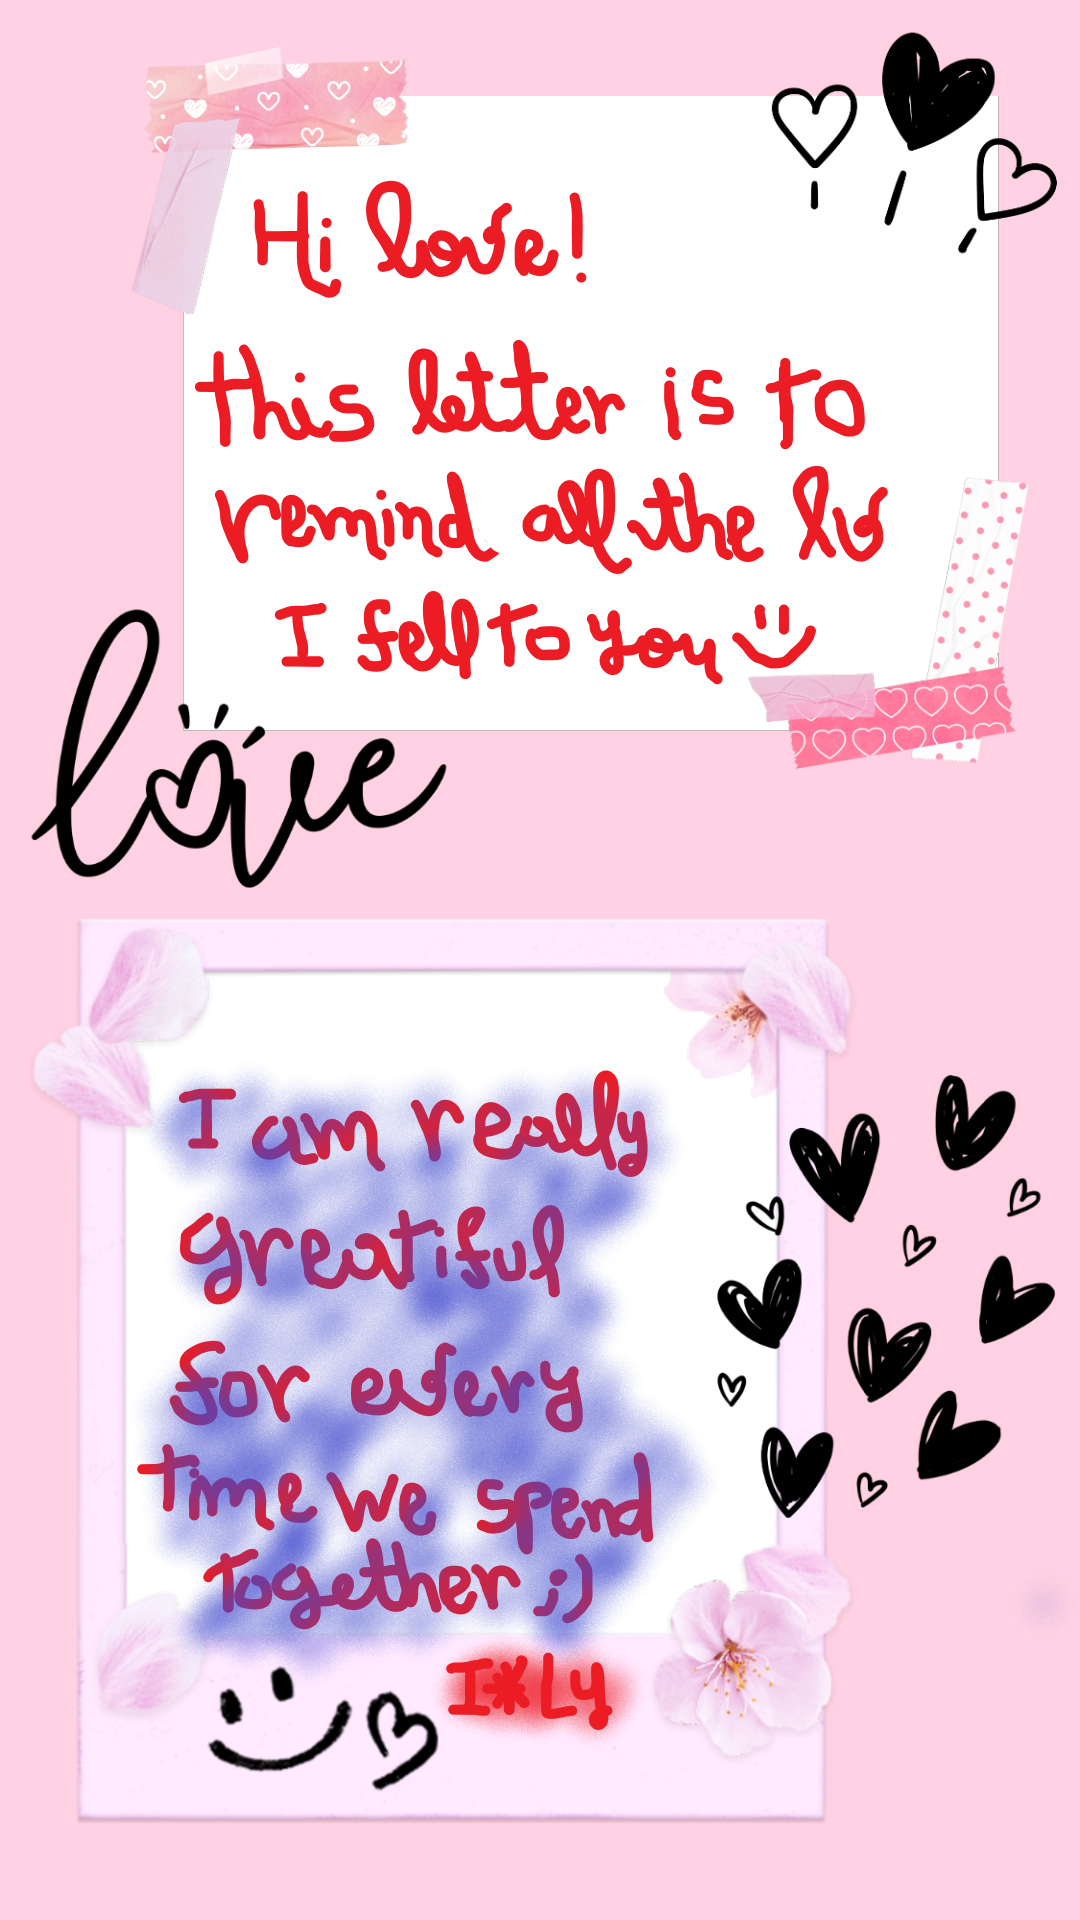 Hi love!
This letter is to
remind all the lv
I fell to you
love
I am really
greatiful
for every
time we spend
together ;)
I*Ly